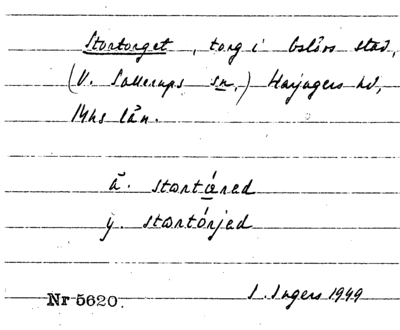 Stortorget, torg i Eslövs stad,
(V. Sallerups sn,) Harjagers hd,
Mhs län.
ä. stortǽ̲red
y. stortórjed
Nr 5620. I. Ingers 1949